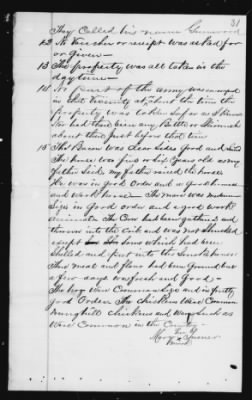 31
They Called his name Greenwood
12 No Voucher or receipt was asked for
or given
13 The property was all taken in the
day time
14 No part of the army was camped
in that vicinity at about the time the
property was taken so far as I know
No had there been any battle or Skirmish
about there just before that time
15 The Bacon was clear Sides good and
The horse was five or Six years old as my
father Said my father raised the horse
He was in good Order and a good
and work horse The mare was
Size in Good order and a good work
The Corn had been gathered and
thrown into the crib and was not Shucked
except Some which had been
Shelled and put into the Smokehouse
The meal and flour had been Ground but
a few days was fresh and Good
The hogs were Common Size and in pretty
good Order The chickens were Common
dunghill chickens and
were Common in the County
her
Mary X
mark